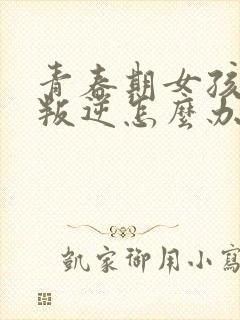 青春期女孩
叛逆怎麼办
凱家御用小寫